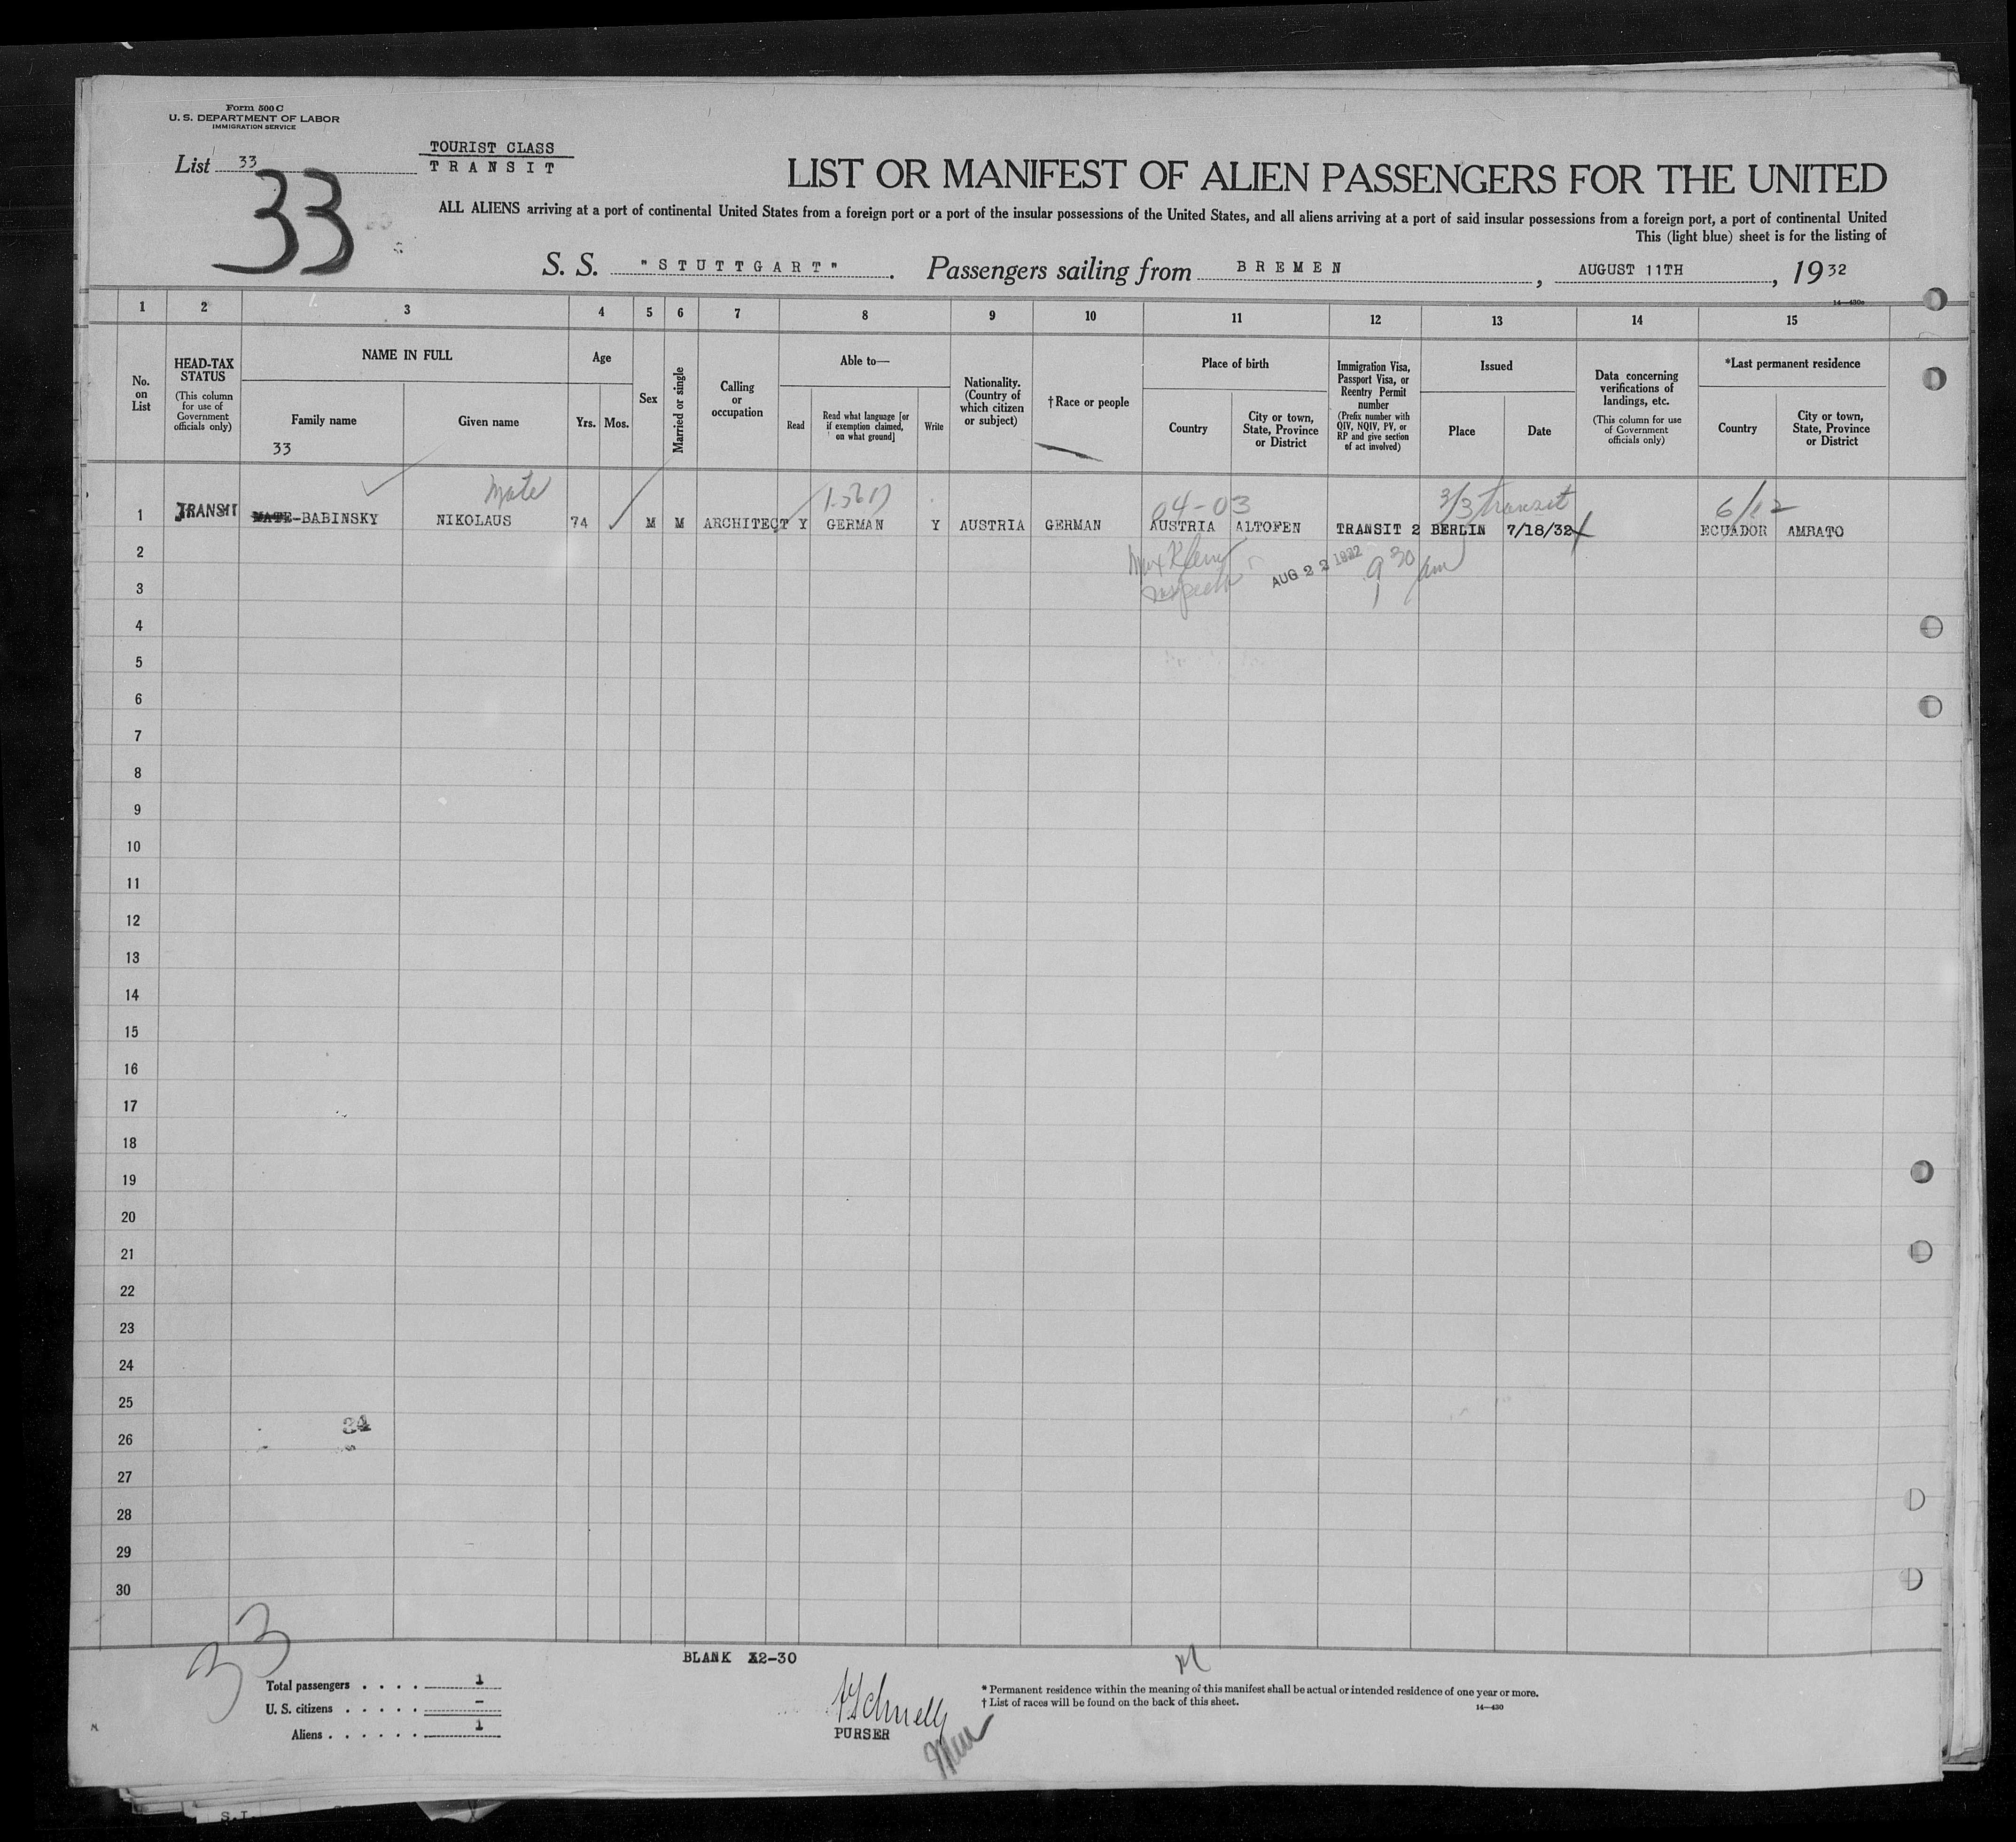 Form 500 C
U. S. DEPARTMENT OF LABOR
IMMIGRATION SERVICE
List 33
TOURIST CLASS
TRANSIT
33
LIST OR MANIFEST OF ALIEN PASSENGERS FOR THE UNITED
ALL ALIENS arriving at a port of continental United States from a foreign port or a port of the insular possessions of the United States, and all aliens arriving at a port of said insular possessions from a foreign port, a port of continental United
This (light blue) sheet is for the listing of
S. S. "STUTTGART". Passengers sailing from BREMEN, AUGUST 11TH, 1932
14—430c
1 2 3 4 5 6 7 8 9 10 11 12 13 14 15
No. on List
HEAD-TAX STATUS
(This column for use of Government officials only)
NAME IN FULL
Family name
Given name
33
Age
Yrs. Mos.
Sex
Married or single
Calling or occupation
Able to—
Read
Read what language [or if exemption claimed, on what ground]
Write
Nationality. (Country of which citizen or subject)
†Race or people
Place of birth
Country
City or town, State, Province or District
Immigration Visa, Passport Visa, or Reentry Permit number
(Prefix number with QIV, NQIV, PV, or RP and give section of act involved)
Issued
Place
Date
Data concerning verifications of landings, etc.
(This column for use of Government officials only)
*Last permanent residence
Country
City or town, State, Province or District
Mate 04-03 3/3 transit 6/12
1 TRANSIT MATE-BABINSKY NIKOLAUS 74 M M ARCHITECT Y GERMAN Y AUSTRIA GERMAN AUSTRIA ALTOFEN TRANSIT 2 BERLIN 7/18/32 ECUADOR AMBATO
AUG 22 1932 9 30 am
2
3
4
5
6
7
8
9
10
11
12
13
14
15
16
17
18
19
20
21
22
23
24
25
34
26
27
28
29
30
33
BLANK 2-30
Total passengers . . . . 1
U. S. citizens . . . . . –
Aliens . . . . . . 1
PURSER
* Permanent residence within the meaning of this manifest shall be actual or intended residence of one year or more.
† List of races will be found on the back of this sheet.
14—430
S.I.